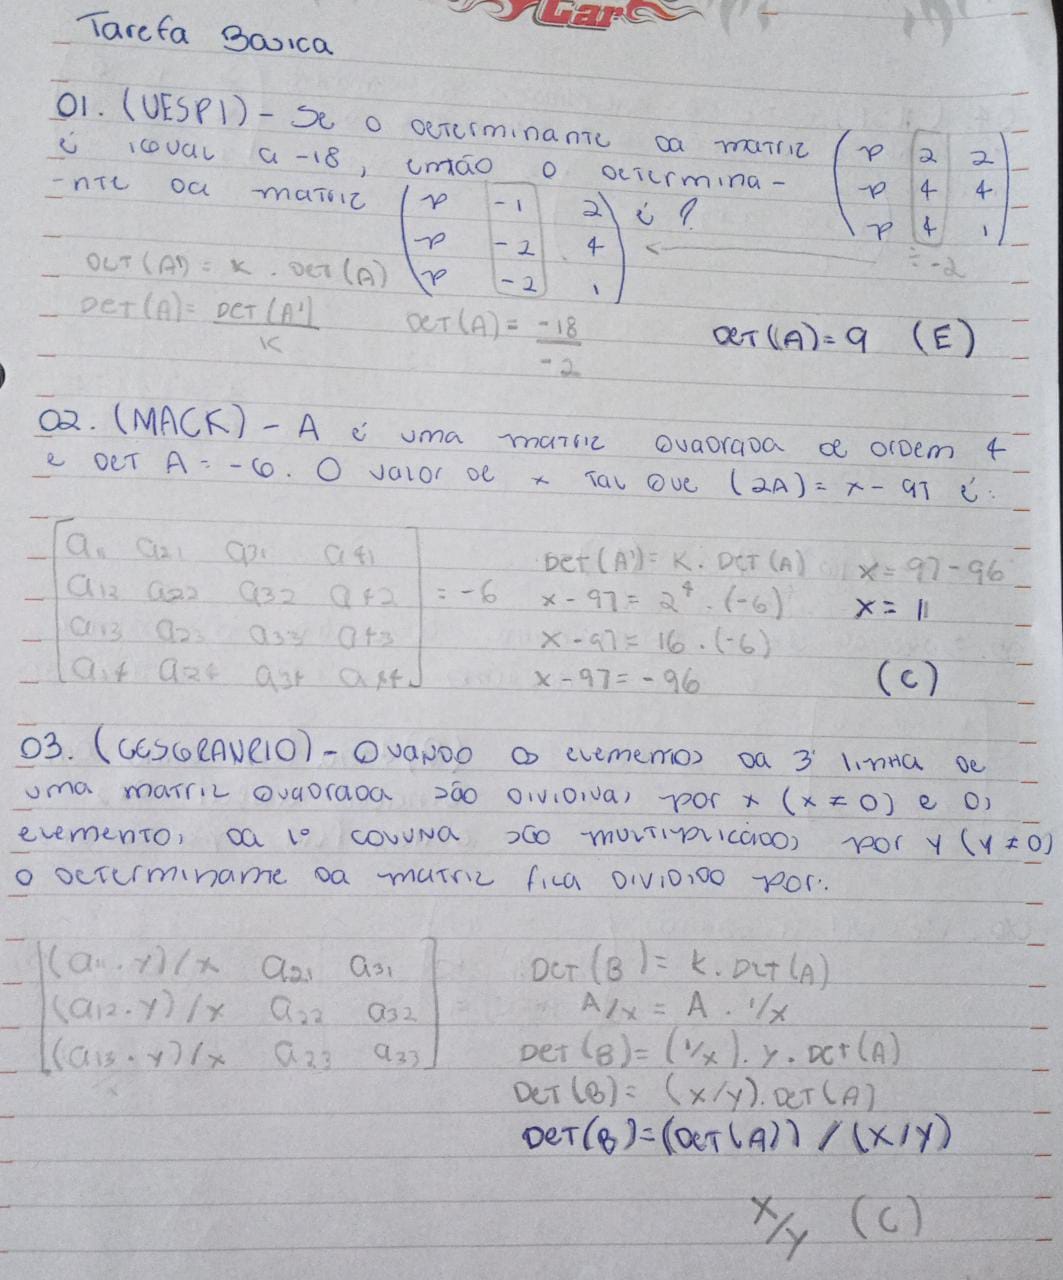 Car
Tarefa Basica
01. (UESPI) - Se o determinante da matriz
é igual a -18, então o determina-
-nte da matriz
p 2 2
p 4 4
p 4 1
÷ -2
p -1 2
p -2 4
p -2 1
é ?
DET (A') = K . DET (A)
DET (A) = DET (A')
K
DET (A) = -18
-2
DET (A) = 9 (E)
02. (MACK) - A é uma matriz quadrada de ordem 4
e DET A = -6. O valor de x tal que (2A) = x - 97 é:
a11 a21 a31 a41
a12 a22 a32 a42 = -6
a13 a23 a33 a43
a14 a24 a34 a44
Det (A') = K. DET (A)
x - 97 = 2⁴ . (-6)
x - 97 = 16 . (-6)
x - 97 = -96
x = 97 - 96
x = 11
(C)
03. (CESGRANRIO) - Quando os elementos da 3ª linha de
uma matriz quadrada são dividivas por x (x ≠ 0) e os
elementos da 1º coluna são multiplicados por y (y ≠ 0)
o determinante da matriz fica dividido por:
(a11 . y) / x a21 a31
(a12 . y) / x a22 a32
(a13 . y) / x a23 a33
DET (B) = K. DET (A)
A/x = A . 1/x
DET (B) = (1/x) . y . DET (A)
DET (B) = (x/y). DET (A)
DET (B) = (DET (A)) / (x/y)
x/y (C)